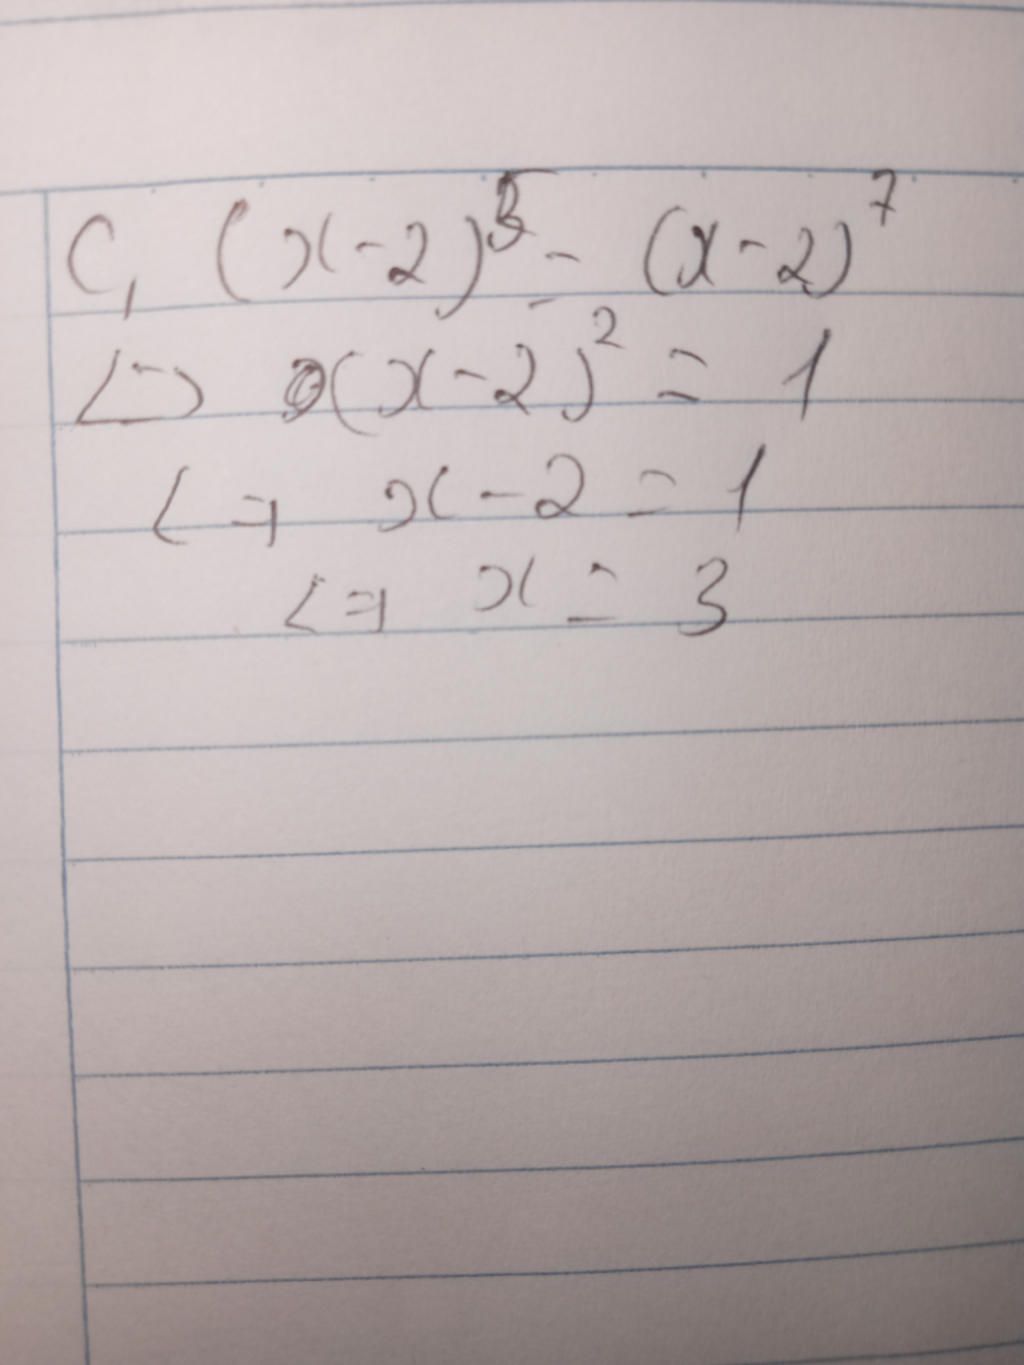 C, (x-2)^5 = (x-2)^7
<=> (x-2)^2 = 1
<=> x-2 = 1
<=> x = 3